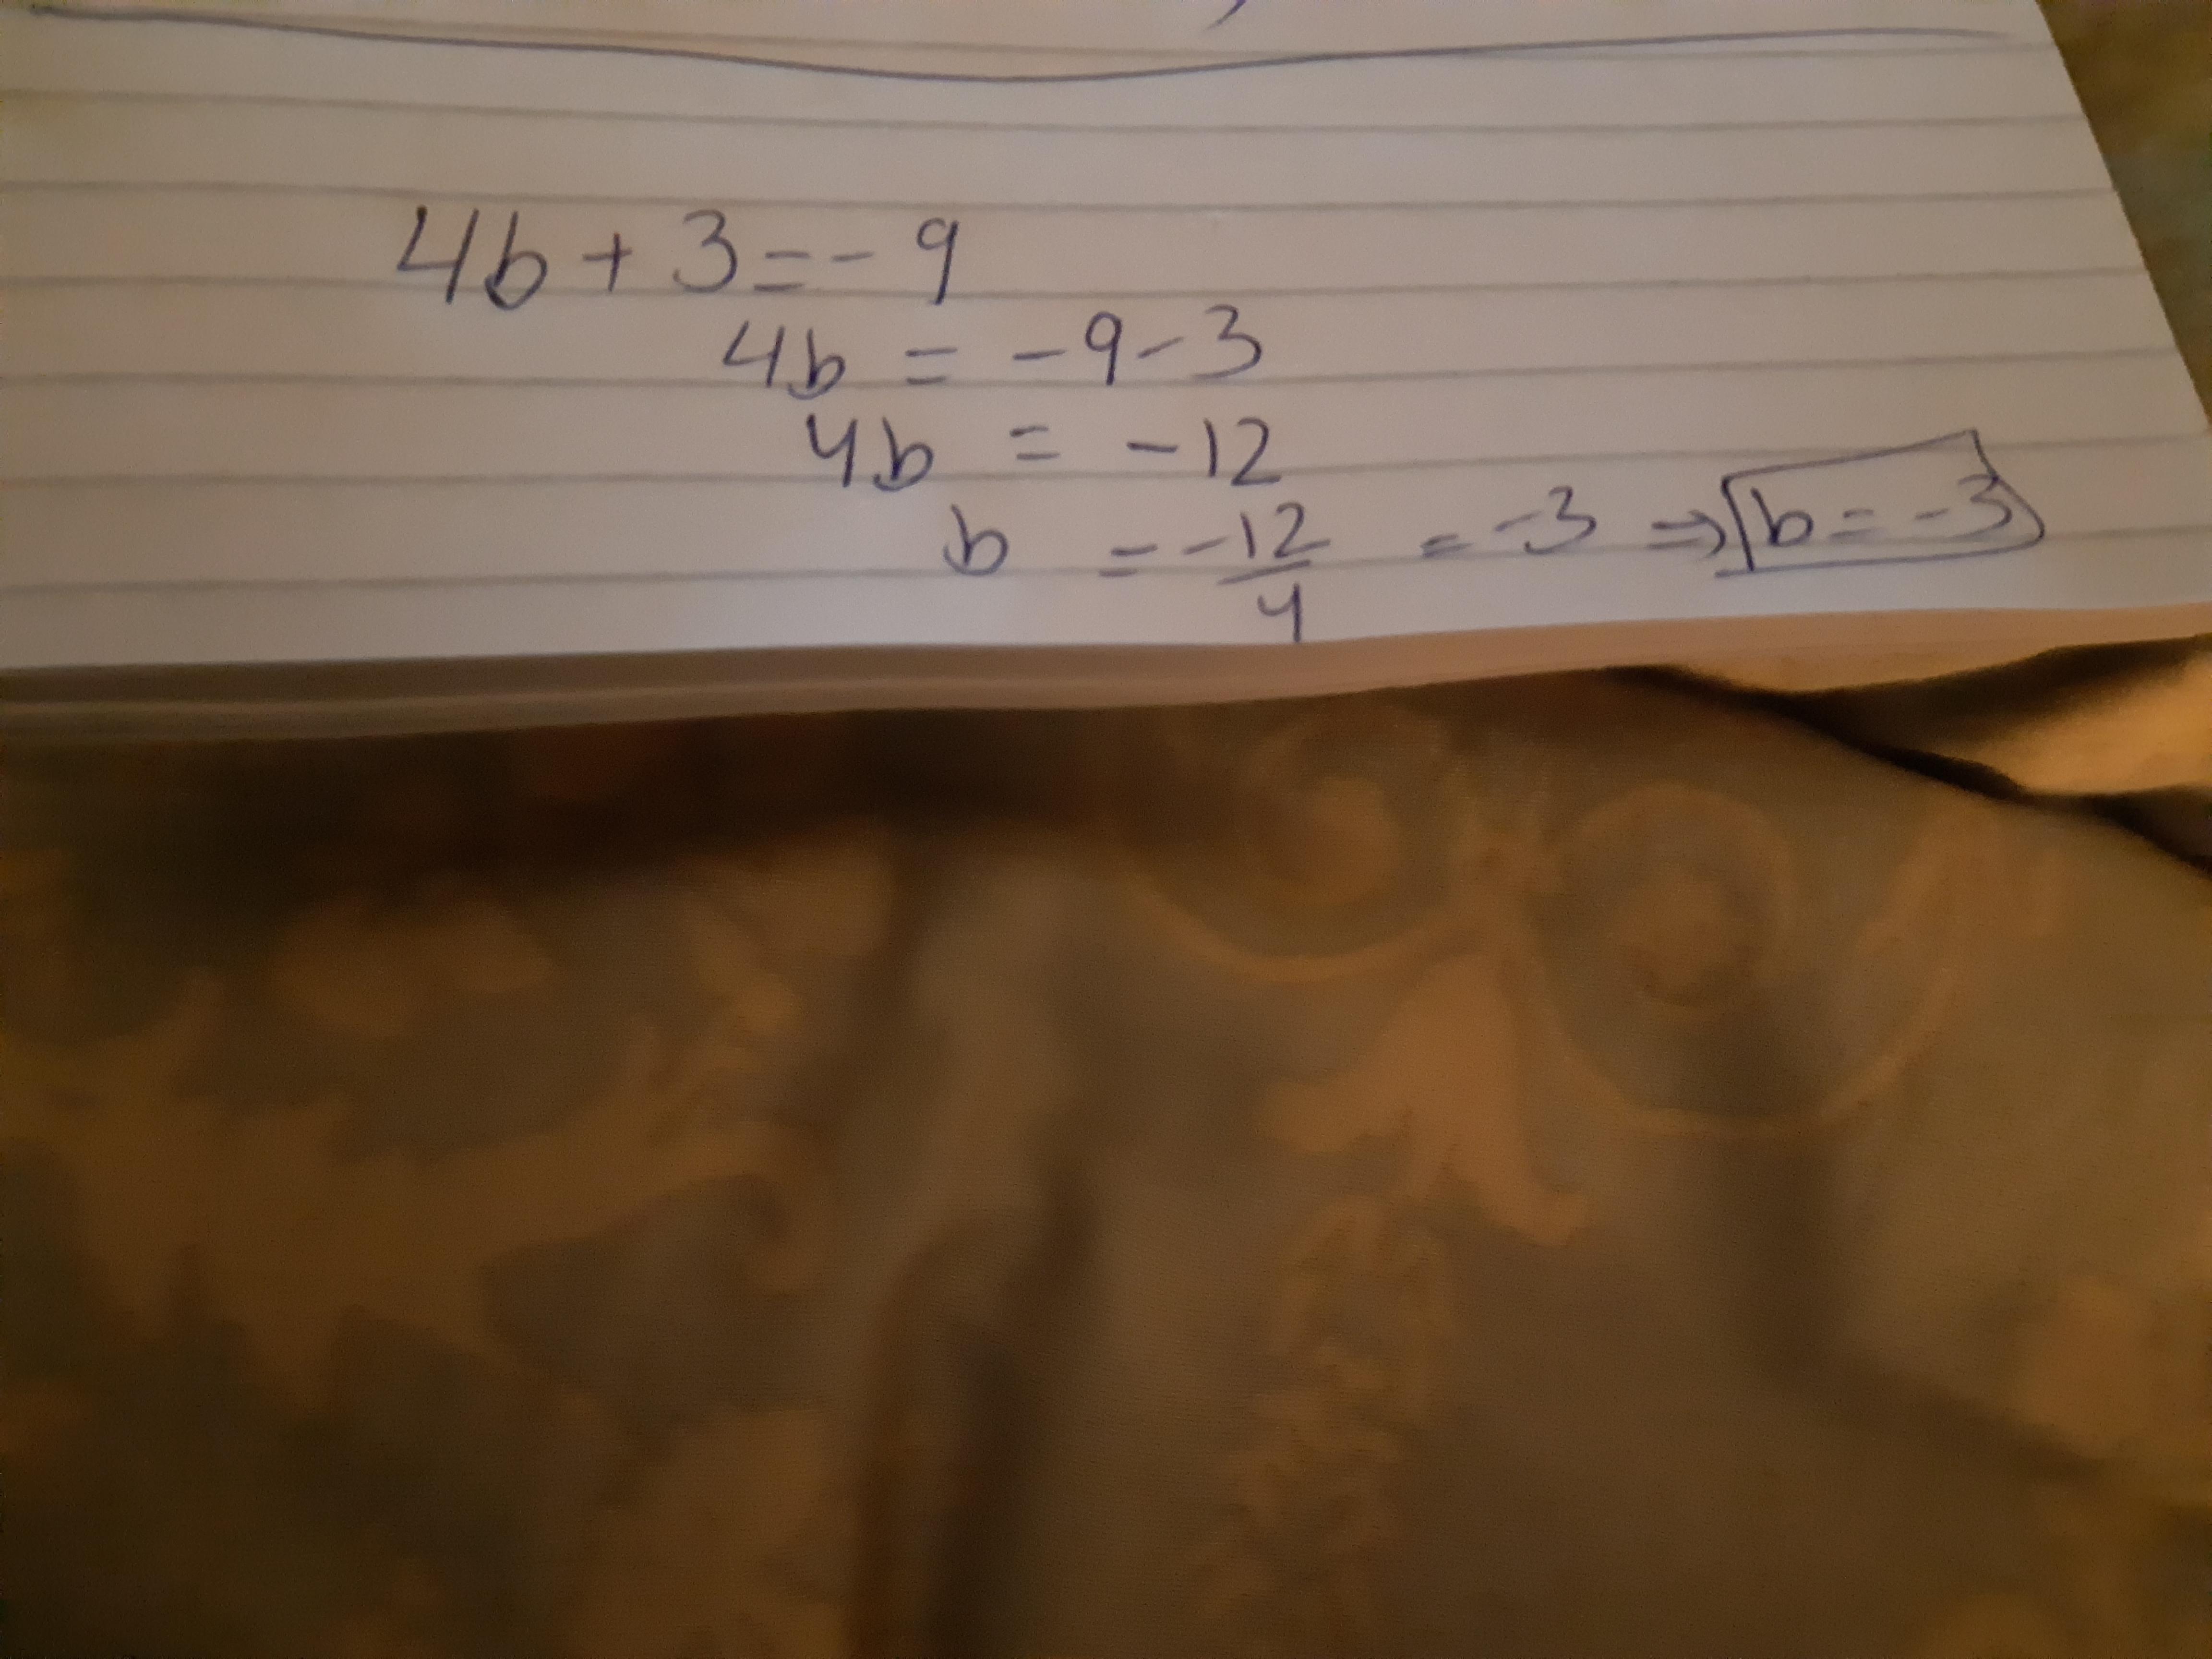 4b + 3 = - 9
4b = - 9 - 3
4b = - 12
b = -12/4 = -3 ⇒ b = -3